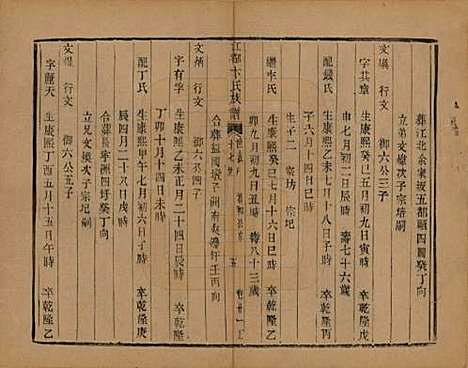 葬江北余家坂五都頭四圖癸丁向
立弟文嶽次子宗培嗣
文漢 行文 御六公三子
字其章 生康熙癸巳五月初九日寅時 卒乾隆戊
申七月初二日辰時 壽七十六歲
配嚴氏 生康熙乙未七月十八日子時 卒乾隆丙
子六月十四日巳時
生子二 宗坊 宗圯
繼李氏 生康熙癸巳七月十六日巳時 卒乾隆乙
卯九月初九日丑時 壽八十三歲
江都卞氏族譜
文炳 行文 御六公四子
字有孚 生康熙乙未正月二十四日辰時 卒乾隆丁
卯十月十四日子時
配丁氏 生康熙甲午七月初六日子時 卒乾隆庚
辰四月二十八日戌時
合葬長洲四圩癸丁向
立兄文漢次子宗圯嗣
文煥 行文 御六公五子
字麗天 生康熙丁酉五月十五日午時 卒乾隆乙